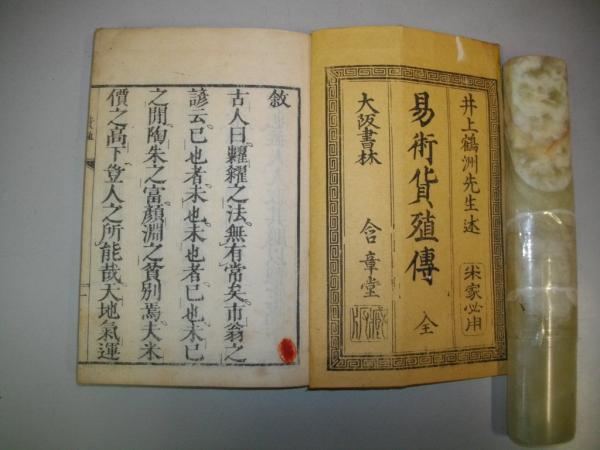 井上鶴洲先生述
米家必用
易術貨殖傳 全
大阪書林 含章堂
敘
古人曰糶糴之法無有常矣市翁之
諺云已也者未也未也者已也已未
之間陶朱之富顏淵之貧別焉夫米
價之高下豈人之所能哉天地氣運